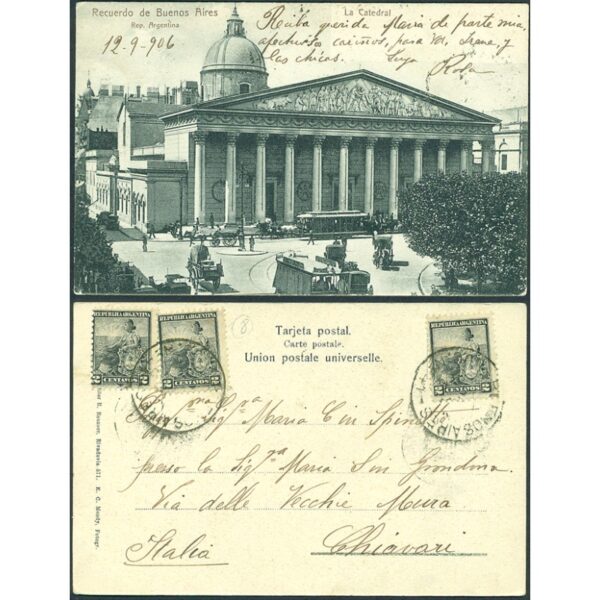 Recuerdo de Buenos Aires
Rep. Argentina
La Catedral
12-9-906
Reciba querida Maria de parte mia
afectuosos cariños, para Vd, Irene, y
las chicas. Suya Rosa
REPUBLICA ARGENTINA
2 CENTAVOS 2
REPUBLICA ARGENTINA
2 CENTAVOS 2
REPUBLICA ARGENTINA
2 CENTAVOS 2
(8)
Tarjeta postal.
Carte postale.
Union postale universelle.
BUENOS AIRES
Sig.na Maria Cin
presso la Sig.ra Maria Sin Grondona
Via delle Vecchie Mura
Italia
Chiavari
R. Rosauer, Rivadavia 571. E. C. Moody, Fotogr.